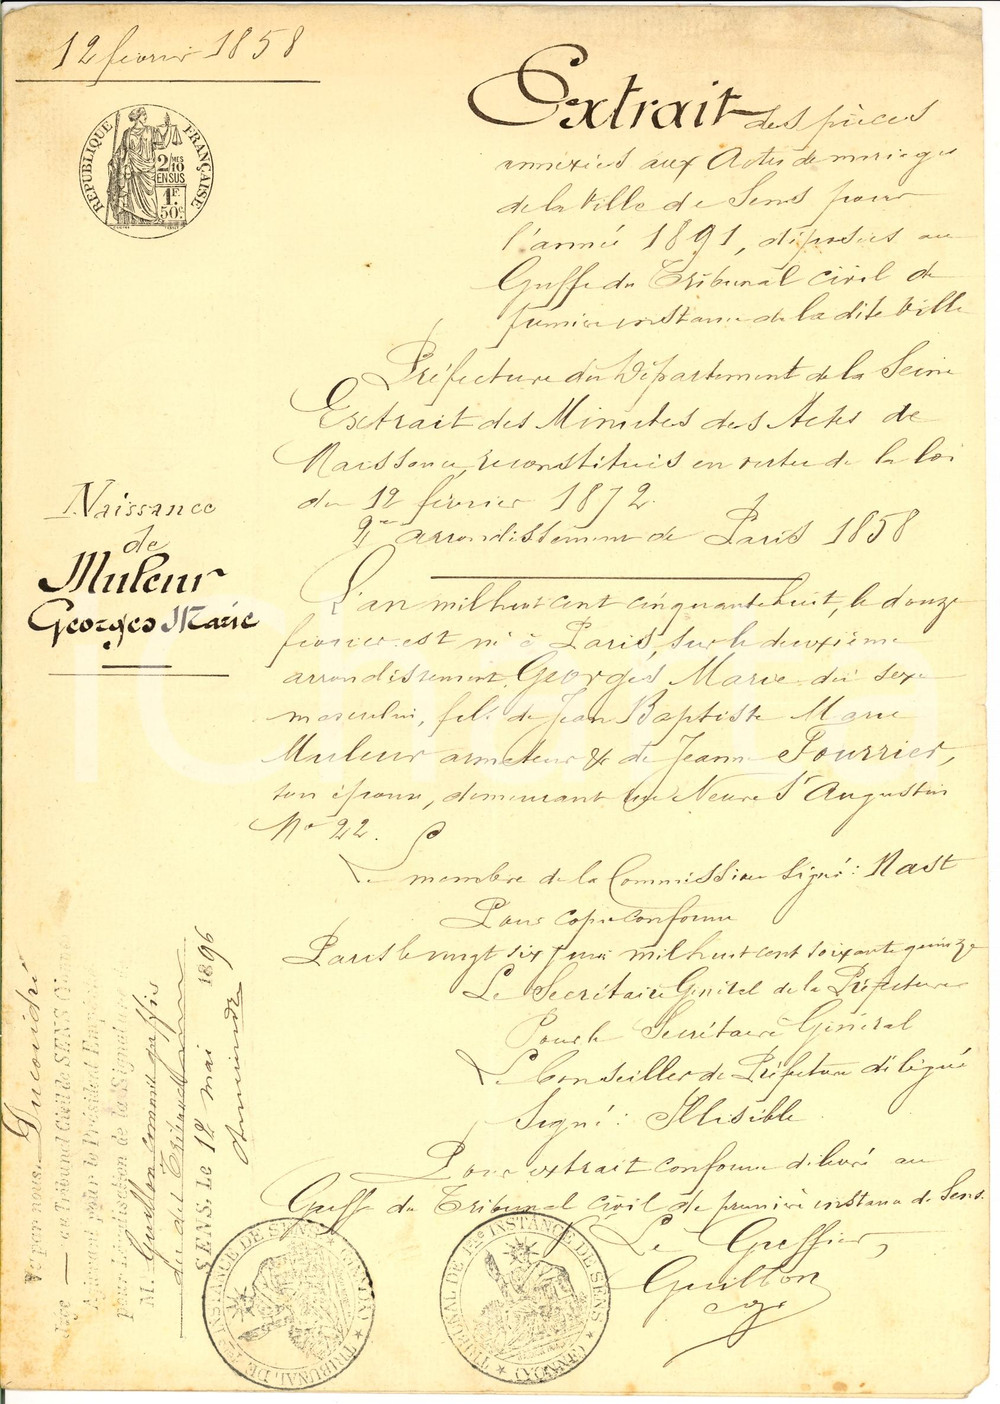 12 février 1858
RÉPUBLIQUE FRANÇAISE
2/10 MES
EN SUS
1F.
50c
Extrait des pièces
annexées aux Actes de mariages
de la Ville de Sens pour
l'année 1891, déposées au
Greffe du Tribunal civil de
première instance de la dite Ville
Préfecture du Département de la Seine
Extrait des Minutes des Actes de
Naissance, reconstitués en vertu de la loi
du 12 février 1872.
2me arrondissement de Paris 1858
Naissance
de
Muleur
Georges Marie
L'an mil huit cent cinquante huit, le douze
février est né à Paris, sur le deuxième
arrondissement, Georges Marie du sexe
masculin, fils de Jean Baptiste Marie
Muleur armateur & de Jeanne Pourrier,
son épouse, demeurant rue Neuve St Augustin
No 22.
Le membre de la Commission Signé: Nast
Pour copie conforme
Paris le vingt six juin mil huit cent soixante quinze
Le Secrétaire Général de la Préfecture
Pour le Secrétaire Général
Le Conseiller de Préfecture délégué
Signé: Illisible
Pour extrait conforme délivré au
Greffe du Tribunal civil de première instance de Sens.
Le Greffier,
Guillon
Vu par nous Ducoudré
Juge — au Tribunal Civil de SENS
pour le Président Empêché
pour Légalisation de la Signature de
M. Guillon commis greffier
du dit Tribunal
SENS, le 12 mai 1896
TRIBUNAL DE 1RE INSTANCE DE SENS (YONNE)
TRIBUNAL DE 1RE INSTANCE DE SENS (YONNE)